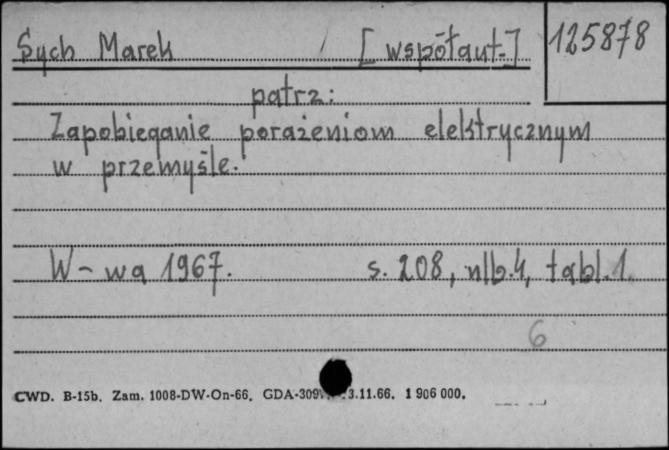 Sych Marek / [współaut.] 125878
patrz:
Zapobieganie porażeniom elektrycznym
w przemyśle.
W-wa 1967. s. 208, nlb. 4, tabl. 1.
6
CWD. B-15b. Zam. 1008-DW-On-66. 3.11.66. 1 906 000.